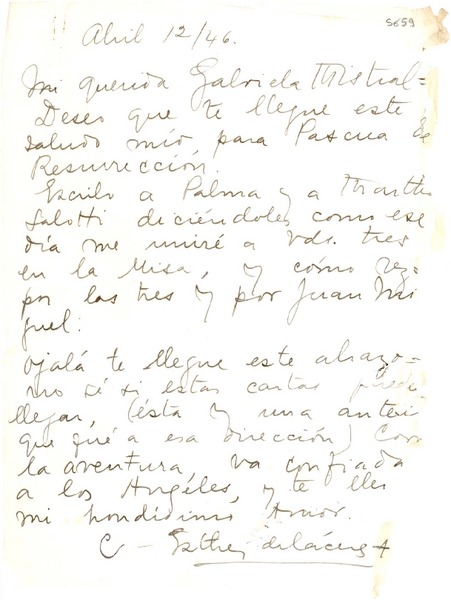 5659
Abril 12/46.
Mi querida Gabriela Mistral=
Deseo que te llegue este
saludo mío, para Pascua de
Resurrección.
Escribo a Palma y a Martha
Salotti diciéndoles como ese
día me uniré a Vds. tres
en la Misa, y cómo rezo
por las tres y por Juan Mi
guel.
Ojalá te llegue este abrazo-
no sé si estas cartas puede
llegar, (ésta y una anteri
que fué a esa dirección) Corr
la aventura, va confiada
a los Angéles, y te lleva
mi hondísimo Amor.
Esther de Cáceres